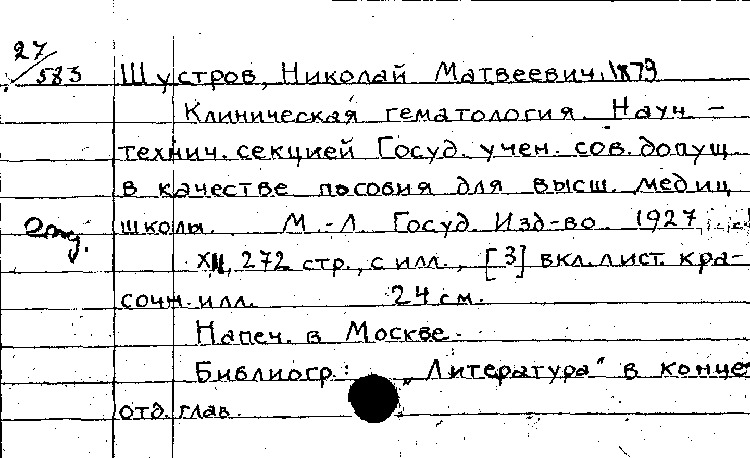 27/583
Шустров, Николай Матвеевич, 1879
Клиническая гематология. Науч.-
технич. секцией Госуд. учен. сов. допущ.
в качестве пособия для высш. медиц.
школы. М.-Л. Госуд. Изд-во. 1927
Отд.
XII, 272 стр., с илл., [3] вкл. лист. кра-
сочн. илл. 24 см.
Напеч. в Москве.
Библиогр.: „Литература" в конце
отд. глав.